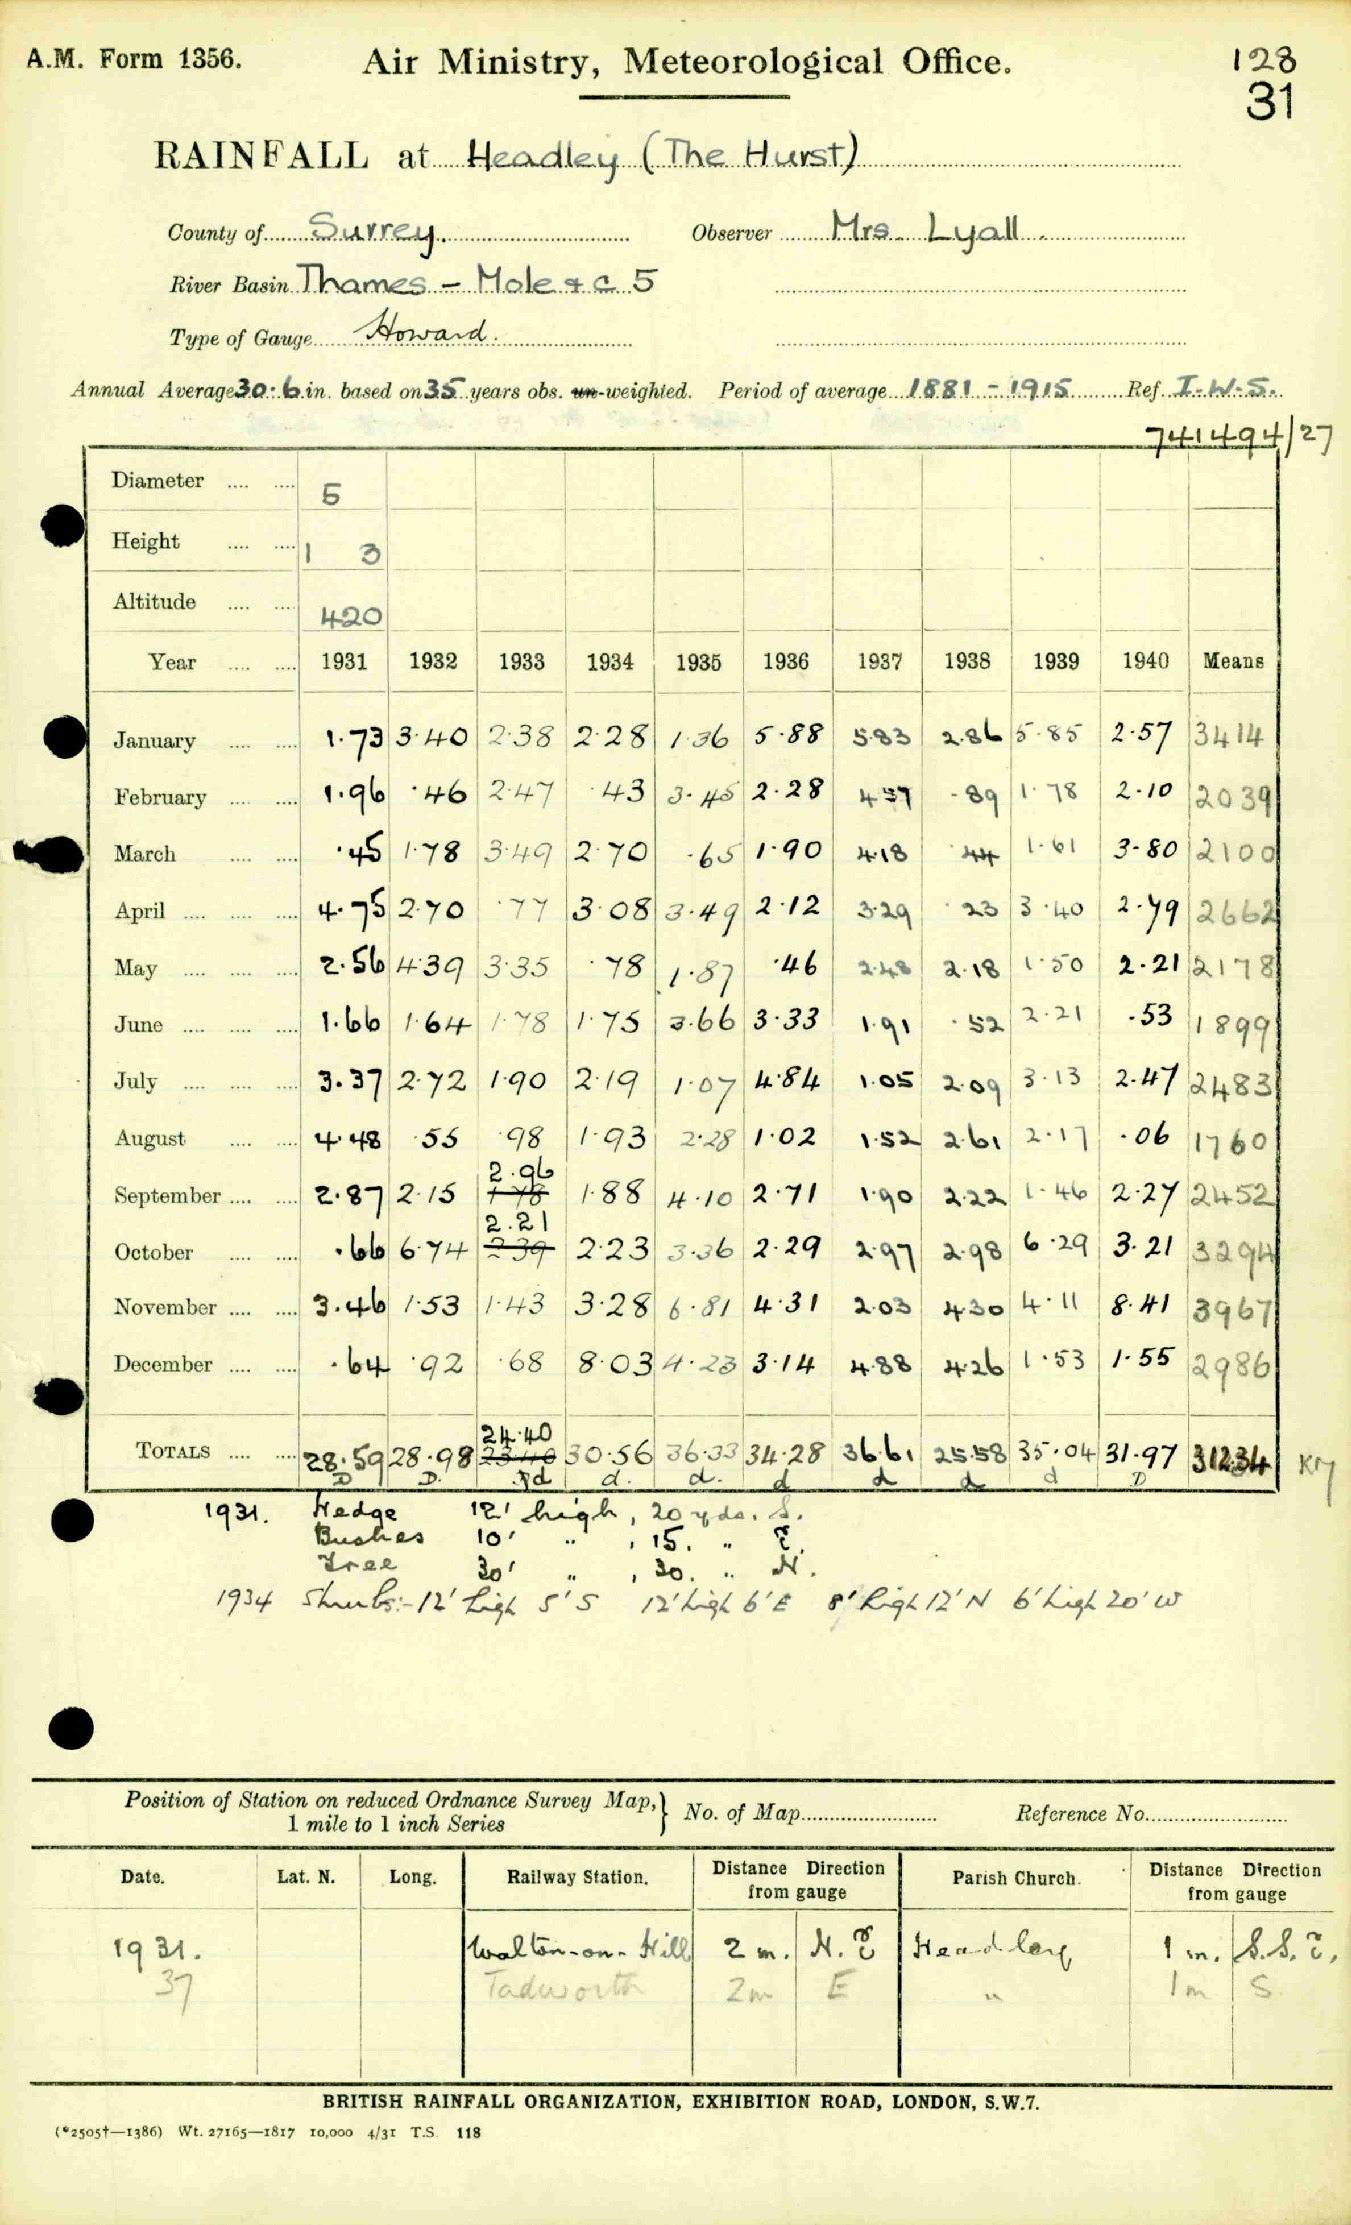 A.M. Form 1356.
Air Ministry, Meteorological Office.
128
31
RAINFALL at Headley (The Hurst)
County of Surrey. Observer Mrs. Lyall.
River Basin Thames - Mole & c 5
Type of Gauge Howard.
Annual Average 30.6 in. based on 35 years obs. un-weighted. Period of average 1881-1915 Ref. I.W.S.
741494/27
Diameter .... .... 5
Height .... .... 1 3
Altitude .... .... 420
Year .... .... 1931 1932 1933 1934 1935 1936 1937 1938 1939 1940 Means
January .... .... 1.73 3.40 2.38 2.28 1.36 5.88 5.83 2.86 5.85 2.57 3414
February .... .... 1.96 .46 2.47 .43 3.45 2.28 4.57 .89 1.78 2.10 2039
March .... .... .45 1.78 3.49 2.70 .65 1.90 4.18 .44 1.61 3.80 2100
April .... .... .... 4.75 2.70 .77 3.08 3.49 2.12 3.29 .23 3.40 2.79 2662
May .... .... .... 2.56 4.39 3.35 .78 1.87 .46 2.48 2.18 1.50 2.21 2178
June .... .... .... 1.66 1.64 1.78 1.75 3.66 3.33 1.91 .52 2.21 .53 1899
July .... .... .... 3.37 2.72 1.90 2.19 1.07 4.84 1.05 2.09 3.13 2.47 2483
August .... .... 4.48 .55 .98 1.93 2.28 1.02 1.52 2.61 2.17 .06 1760
2.96
September .... .... 2.87 2.15 1.78 1.88 4.10 2.71 1.90 2.22 1.46 2.27 2452
2.21
October .... .... .66 6.74 2.39 2.23 3.36 2.29 2.97 2.98 6.29 3.21 3294
November .... .... 3.46 1.53 1.43 3.28 6.81 4.31 2.03 4.30 4.11 8.41 3967
December .... .... .64 .92 .68 8.03 4.23 3.14 4.88 4.26 1.53 1.55 2986
24.40
TOTALS .... .... 28.59 28.98 23.40 30.56 36.33 34.28 36.61 25.58 35.04 31.97 31234
D D. d d. d. d d d d D
1931. Hedge 12' high, 20 yds. S.
Bushes 10' " , 15. " E.
Tree 30' " , 30. " N.
1934 Shrubs:- 12' high 5' S 12' high 6' E 8' high 12' N 6' high 20' W
Position of Station on reduced Ordnance Survey Map,} No. of Map Reference No.
1 mile to 1 inch Series
Date. Lat. N. Long. Railway Station. Distance Direction from gauge Parish Church. Distance Direction from gauge
1931. Walton-on-Hill 2 m. N.E Headley 1 m. S.S.E.
37 Tadworth 2m E " 1m S.
BRITISH RAINFALL ORGANIZATION, EXHIBITION ROAD, LONDON, S.W.7.
(*2505†—1386) Wt. 27165—1817 10,000 4/31 T.S. 118